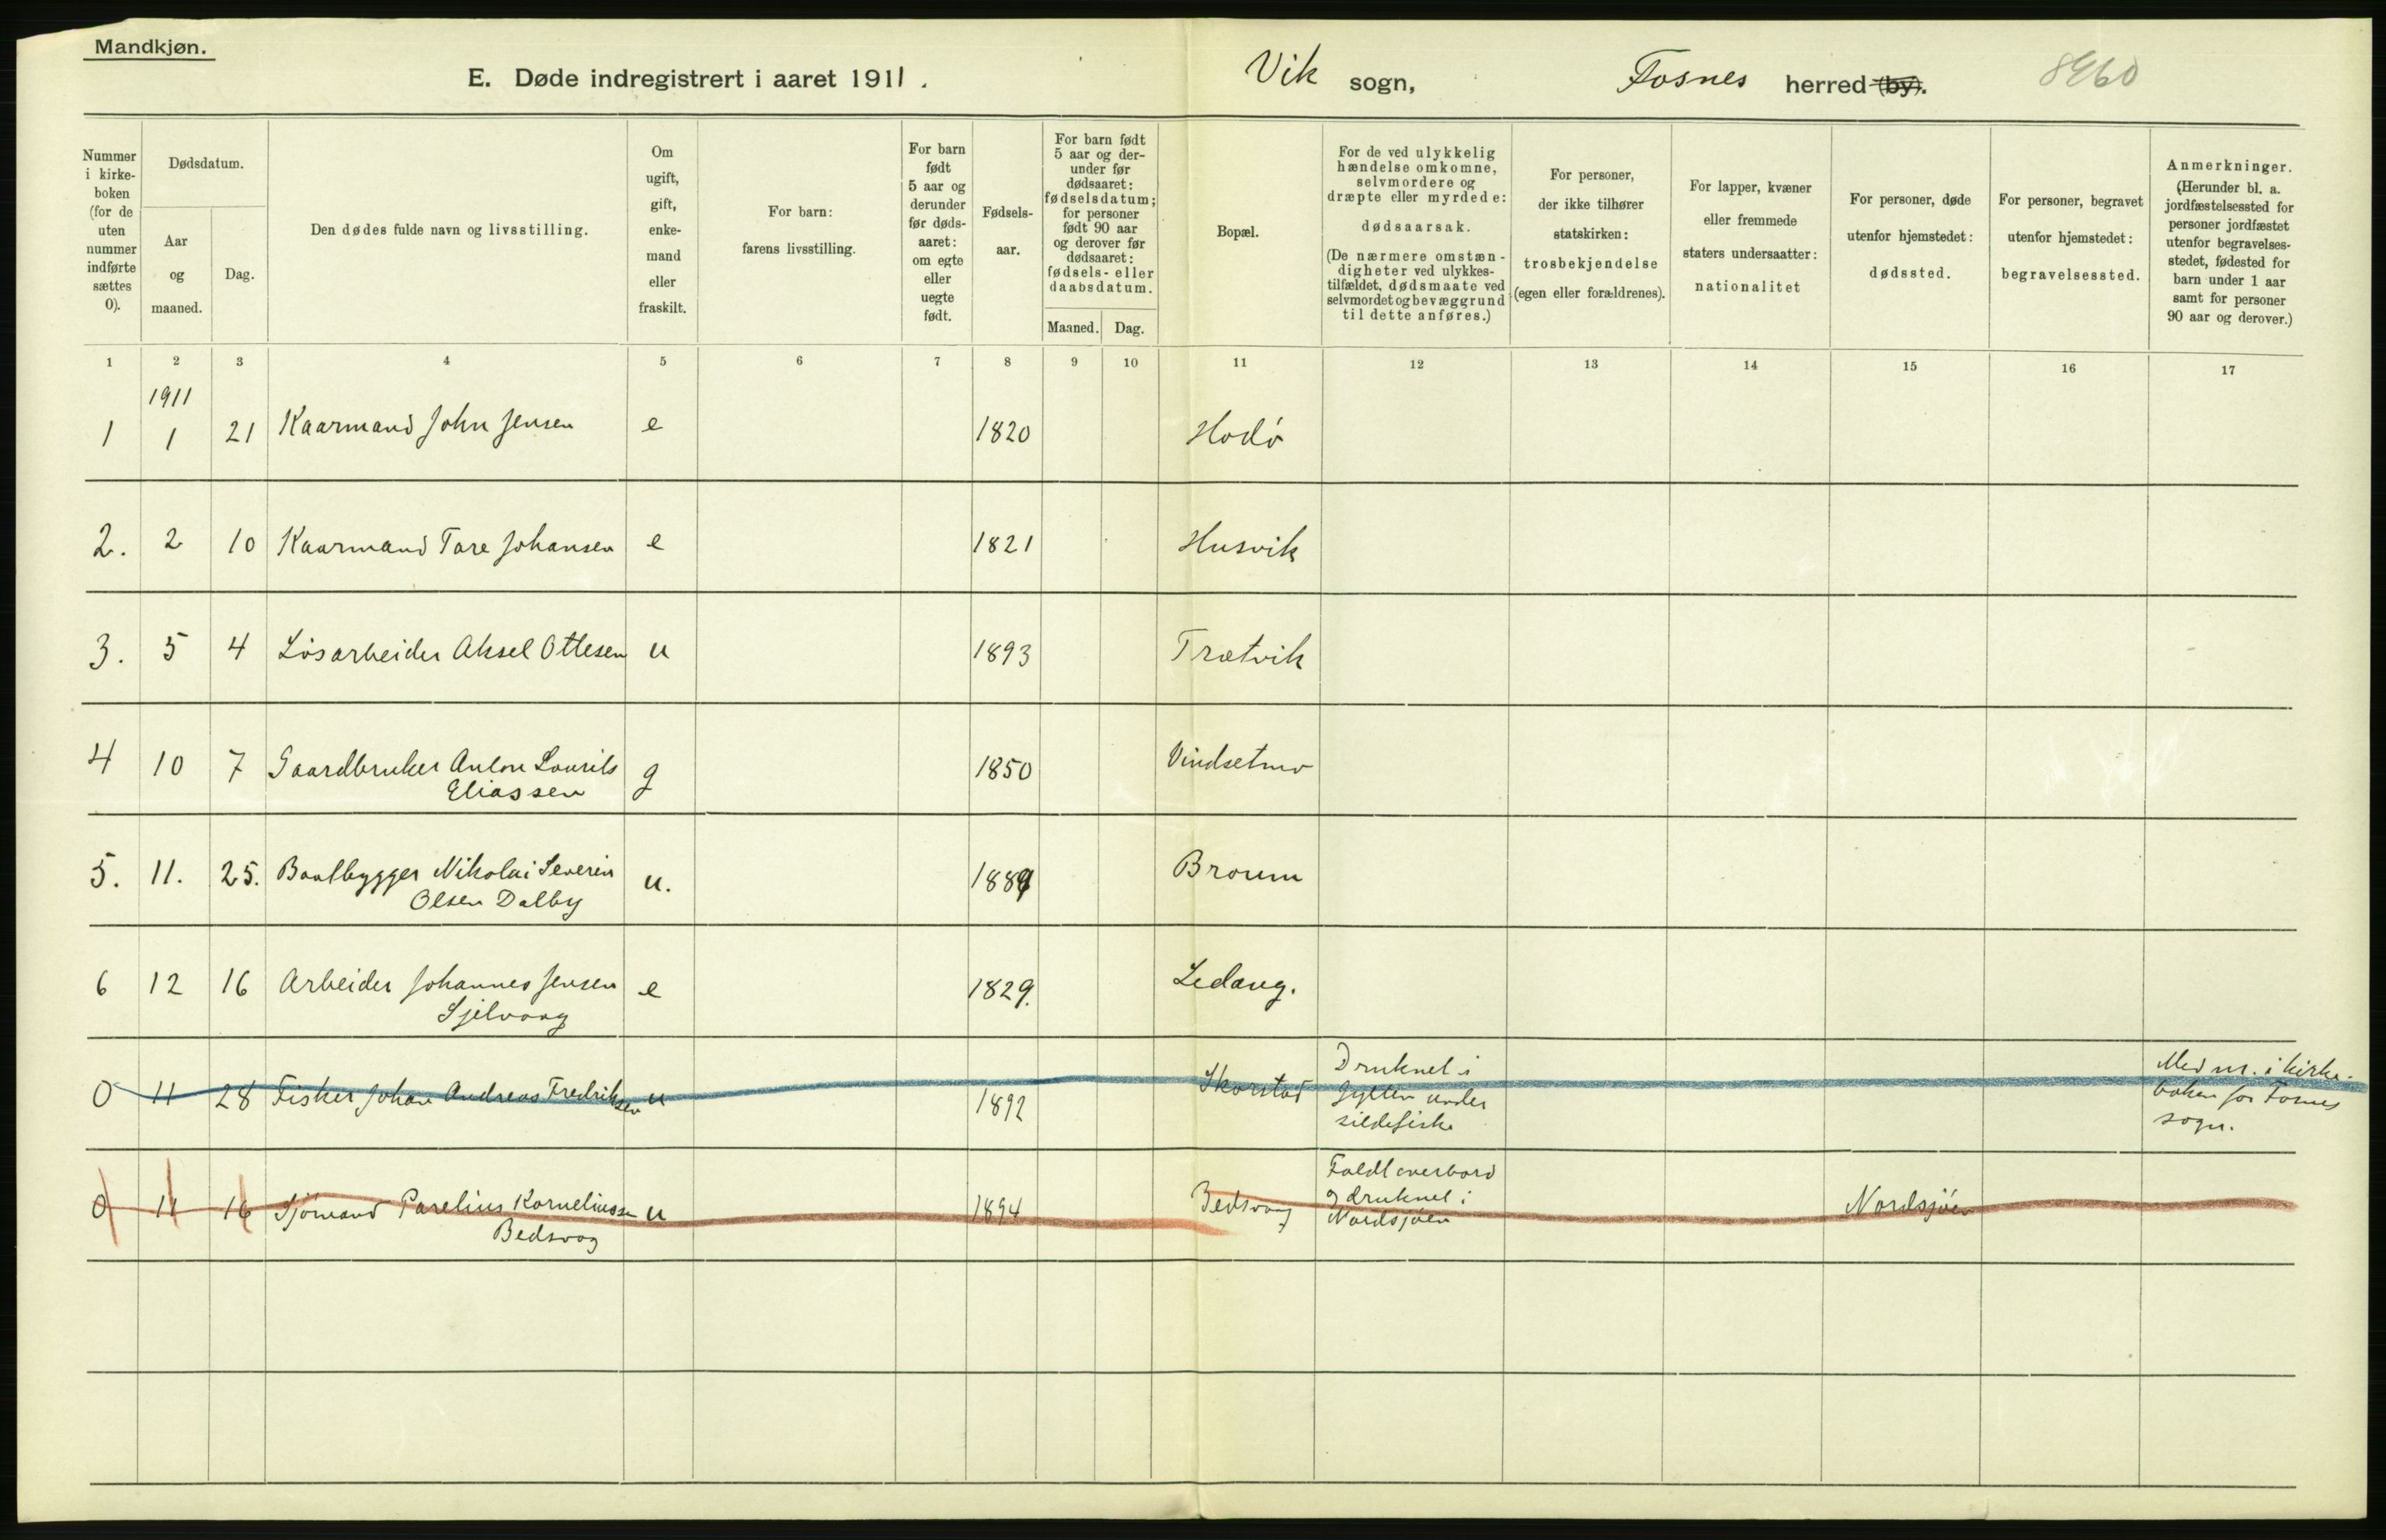 Mandkjøn.
E. Døde indregistrert i aaret 1911.
Vik sogn,
Fosnes herred (by).
8960
Nummer
i kirke-
boken
(for de
uten
nummer
indførte
sættes
0).
Dødsdatum.
Aar
og
maaned.
Dag.
Den dødes fulde navn og livsstilling.
Om
ugift,
gift,
enke-
mand
eller
fraskilt.
For barn:
farens livsstilling.
For barn
født
5 aar og
derunder
før døds-
aaret:
om egte
eller
uegte
født.
Fødsels-
aar.
For barn født
5 aar og der-
under før
dødsaaret:
fødselsdatum;
for personer
født 90 aar
og derover før
dødsaaret:
fødsels- eller
daabsdatum.
Maaned. Dag.
Bopæl.
For de ved ulykkelig
hændelse omkomne,
selvmordere og
dræpte eller myrdede:
dødsaarsak.
(De nærmere omstæn-
digheter ved ulykkes-
tilfældet, dødsmaate ved
selvmordet og bevæggrund
til dette anføres.)
For personer,
der ikke tilhører
statskirken:
trosbekjendelse
(egen eller forældrenes).
For lapper, kvæner
eller fremmede
staters undersaatter:
nationalitet
For personer, døde
utenfor hjemstedet:
dødssted.
For personer, begravet
utenfor hjemstedet:
begravelsessted.
Anmerkninger.
(Herunder bl. a.
jordfæstelsessted for
personer jordfæstet
utenfor begravelses-
stedet, fødested for
barn under 1 aar
samt for personer
90 aar og derover.)
1 2 3 4 5 6 7 8 9 10 11 12 13 14 15 16 17
1911
1 1 21 Kaarmand John Jensen e 1820 Hodö
2. 2 10 Kaarmand Tore Johansen e 1821 Husvik
3. 5 4 Lösarbeider Aksel Ottesen u 1893 Trætvik
4 10 7 Gaardbruker Anton Laurits g 1850 Vindsetmo
Eliassen
5. 11. 25. Baatbygger Nikolai Severin u. 1889 Broum
Olsen Dalby
6 12 16 Arbeider Johannes Jensen e 1829. Ledang.
Sjelvaag
0 11 28 Fisker Johan Andreas Fredriksen u 1892 Skorstad
Druknet i
under
sildefiske
Med nr. i kirke-
boken for Fosnes
sogn.
0 11 16 Sjömand Parelius Korneliussen u 1894 Bedsvaag
Bedsvag
Faldt overbord
og druknet i
Nordsjöen
Nordsjöen